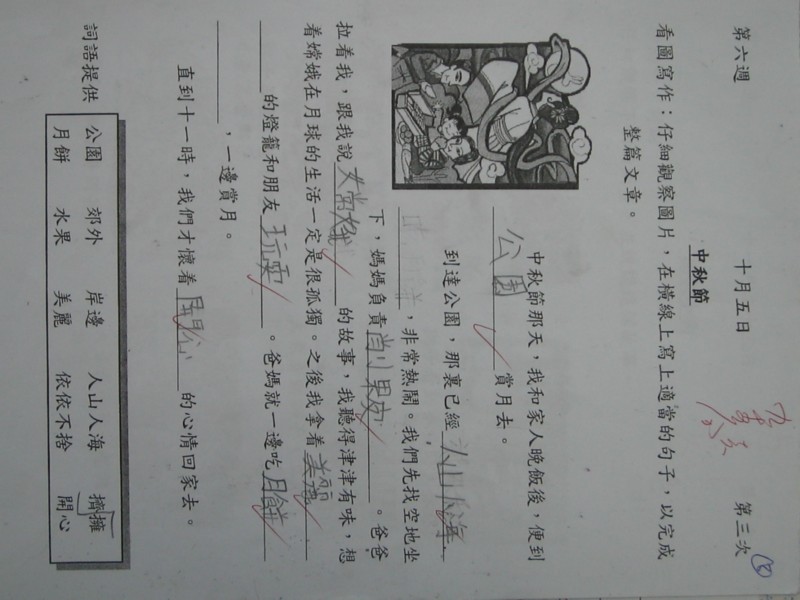 第六週 十月五日 第三次
中秋節
看圖寫作：仔細觀察圖片，在橫線上寫上適當的句子，以完成
整篇文章。
中秋節那天，我和家人晚飯後，便到
公園賞月去。
到達公園，那裏已經人山人海
，非常熱鬧。我們先找空地坐
下，媽媽負責削果皮。爸爸
拉着我，跟我說嫦娥的故事，我聽得津津有味，想
着嫦娥在月球的生活一定是很孤獨。之後我拿着美麗
的燈籠和朋友玩耍。爸媽就一邊吃月餅
，一邊賞月。
直到十一時，我們才懷着開心的心情回家去。
詞語提供
公園 郊外 岸邊 人山人海 擠擁
月餅 水果 美麗 依依不捨 開心